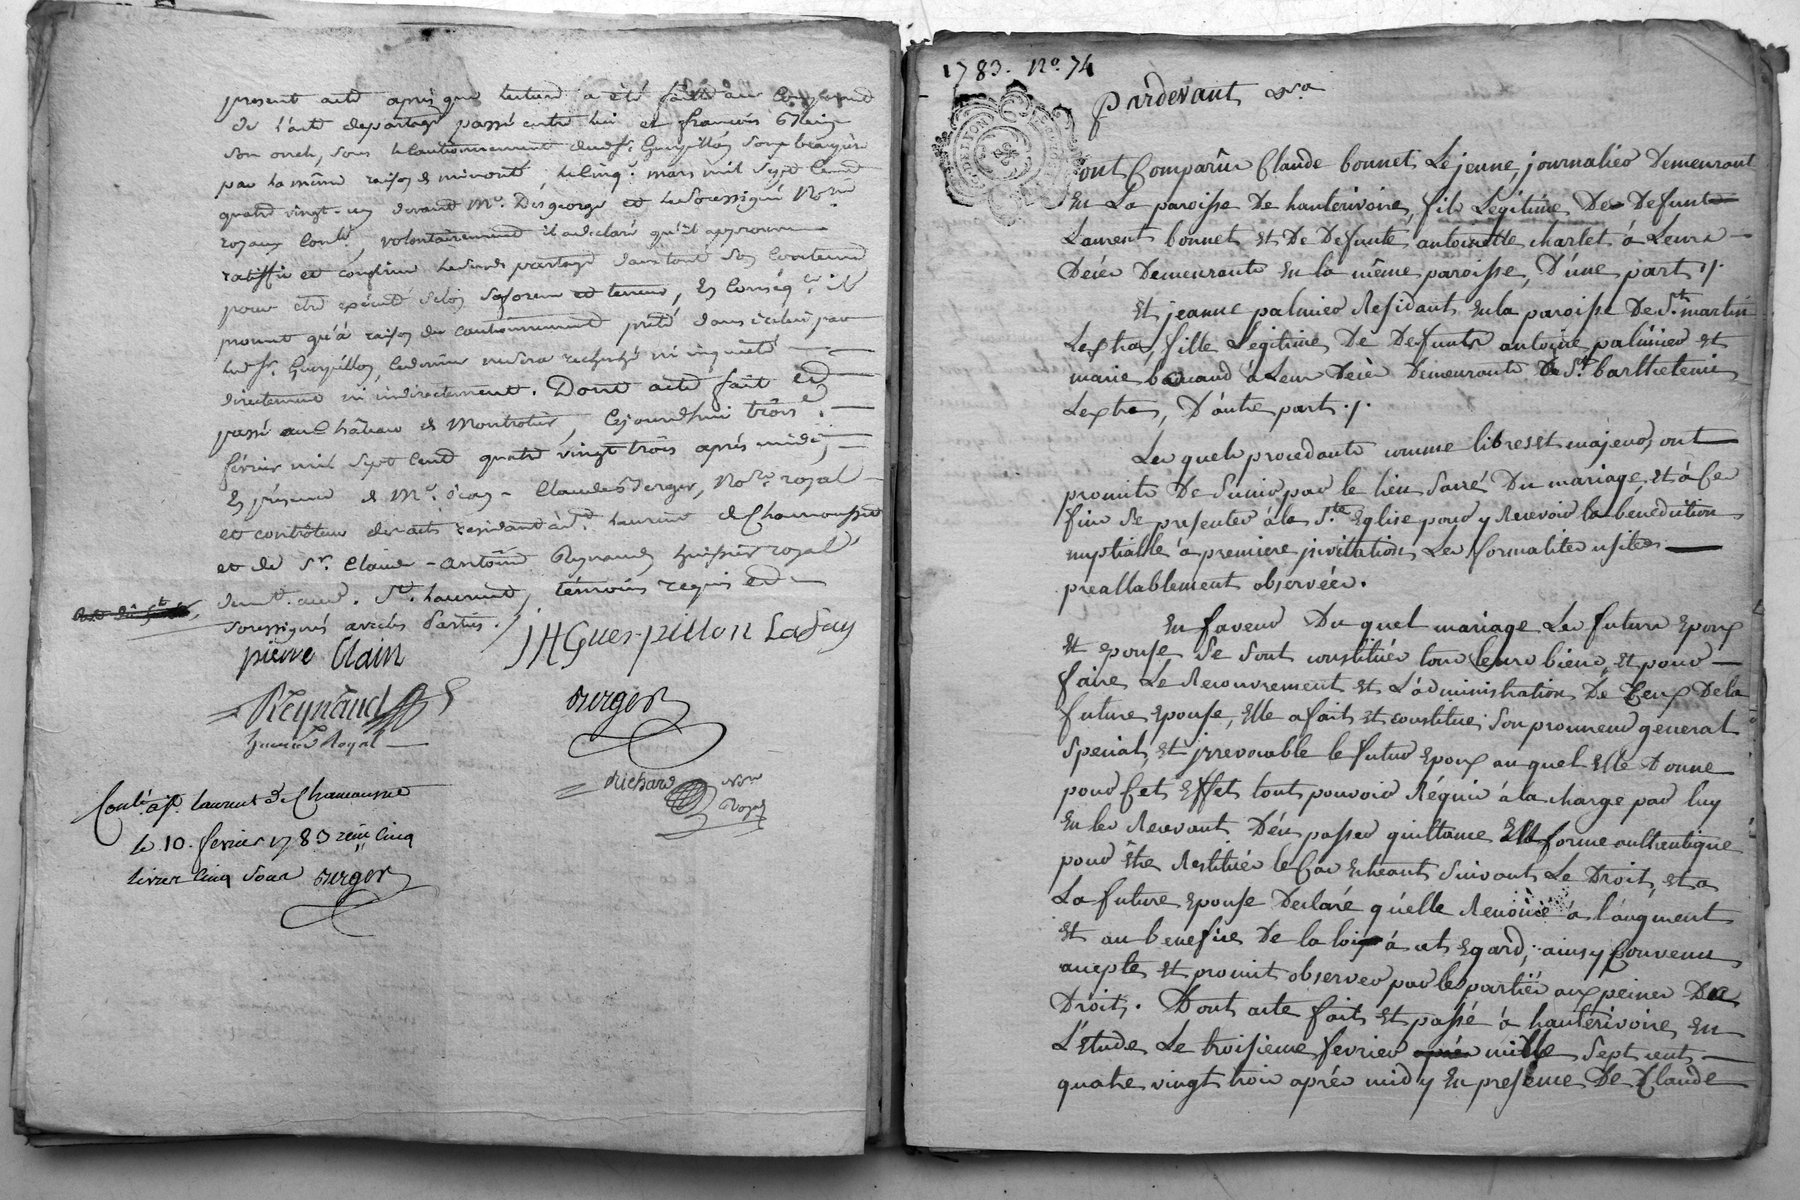 present acte après que lecture a été faite au
de l'acte departage passé entre lui et françois Clain
son oncle, sous le cautionnement dudt Sr. Guerpillon
par la même raison de minorité, le cinq. mars mil sept cent
quatre vingt-un devant Me. Desgeorge et le soussigné Nore.
royaux, volontairement il a declaré qu'il approuve
ratiffie et confirme ledit partage dans tout son contenu
pour être exécuté selon sa forme et teneur, En conséqce. il
promet qu'à raison du cautionnement prêté dans icelui par
ledt Sr. Guerpillon, ce dernier ne sera recherché ni inquieté
directement ni indirectement. Dont acte fait et
passé au Château de Montrotier, Cejourdhui trois
février mil sept cent quatre vingt trois après midi,
En présence de Me. Claude Berger, Nore. royal
et contrôleur des actes residant à St. Laurent de Chamousset
et de Sr. Claude-Antoine Reynaud huissier royal
demt. aud. St. Laurent, témoins requis et
soussignés avec les Parties.
pierre Clain JH Guerpillon Lafay
Reynaud Berger
huissier Royal
Richard Nore
Royal
Contlé. à St. Laurent de Chamousset
le 10. fevrier 1783 reçu cinq
livres cinq sous Berger
1783. No. 74
Pardevant &ra
ont Comparu Claude bonnet, Le jeune, journalier Demeurant
En La paroisse De hauterivoire, fils Legitime De Defunt
Laurent bonnet et De Defunte antoinette charlet à Leurs
Décès Demeurants En la même paroisse, D'une part ./.
Et jeanne palmier Residant En la paroisse De St. martin
Lestra, fille Legitime De Defunts antoine palmier et
marie à Leur Décès Demeurants De St. barthelemi
Lestra, D'autre part ./.
Les quels procedants comme libres et majeurs, ont
promis De s'unir par le lien sacré Du mariage, et à ces
fins se presenter à la Ste. Eglise pour y Recevoir la benediction
nuptialle à premiere invitation, Les formalités usitées
preallablement observées.
En faveur Du quel mariage Les futurs Epoux
Et epouse se sont constitués tous leurs biens, et pour
faire Le Recouvrement et L'administration De Ceux De la
future Epouse, Elle a fait et constitué son procureur general
special, et irrevocable le futur Epoux au quel Elle Donne
pour Cet Effet tout pouvoir Requis à la charge par luy
En les Recevant D'en passer quittance En forme authentique
pour être Restitués le Cas Echeant suivant Le Droit, et a
La future Epouse Declaré qu'elle Renonce à l'augment
et au benefice De la loi à cet Egard, ainsy Convenu
accepté et promit observer par les parties aux peines De
Droit. Dont acte fait et passé à hauterivoire En
L'Etude Le troisieme fevrier mille sept cent
quatre vingt trois après midy En presence De Claude